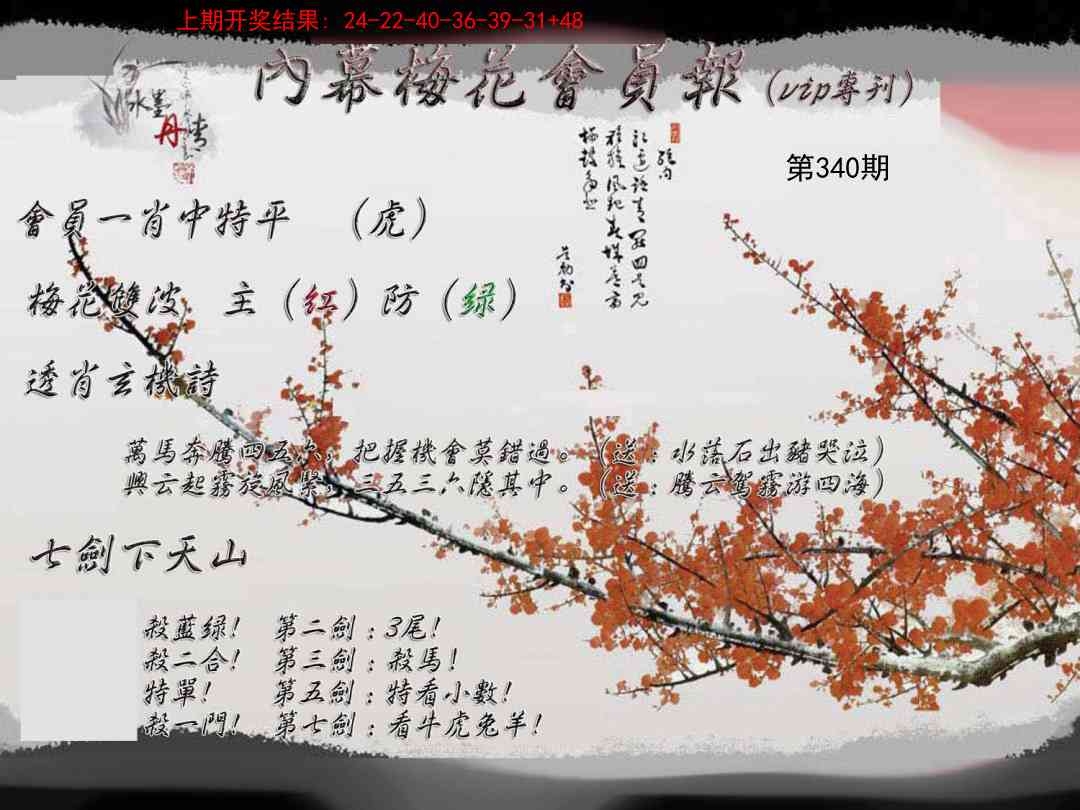 上期开奖结果：24-22-40-36-39-31+48
內幕梅花會員報（vip專刊）
水墨
丹情
第340期
會員一肖中特平　（虎）
梅花雙波　主（红）防（绿）
透肖玄機詩
萬馬奔騰四五六，把握機會莫錯過。（送：水落石出豬哭泣）
興云起霧旋風緊，三五三六隱其中。（送：騰云駕霧游四海）
七劍下天山
殺藍绿！　第二劍：3尾！
殺二合！　第三劍：殺馬！
特單！　第五劍：特看小數！
殺一門！　第七劍：看牛虎兔羊！